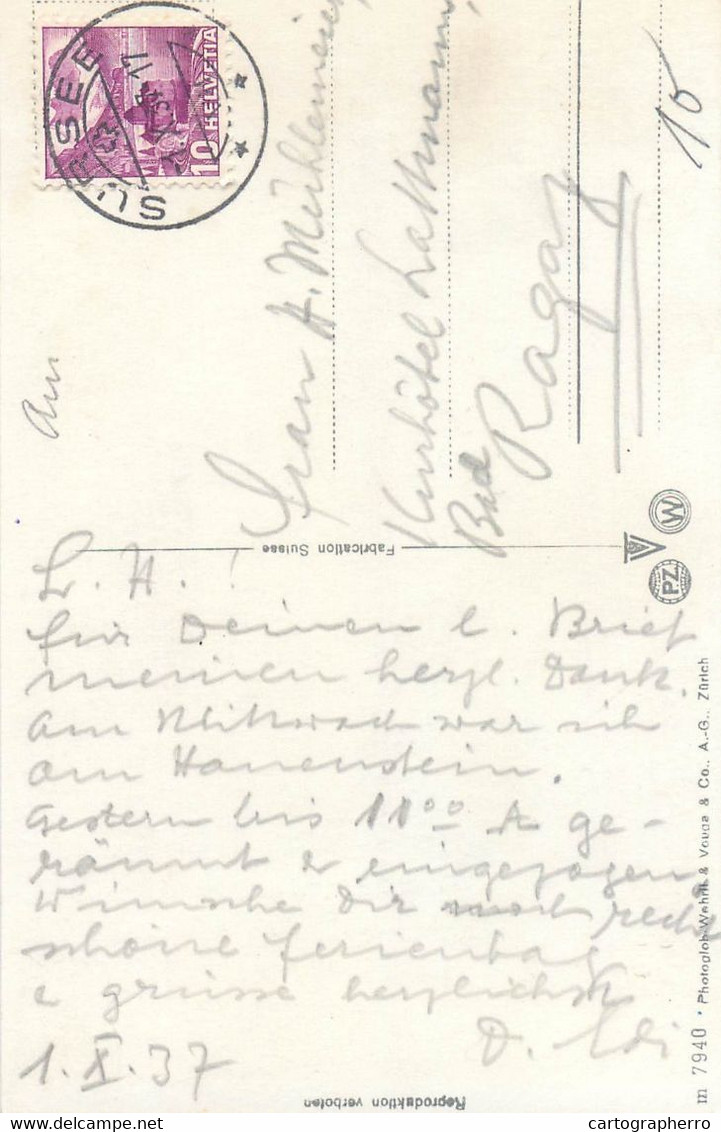 SURSEE
10 HELVETIA
15
An
Frau H. Mühlemeier,
Kurhôtel Lattmann,
Bad
Ragaz
Fabrication Suisse
W
P.Z.
L. H. !
für Deinen l. Brief
meinen herzl. Dank.
Am Mittwoch war ich
am Hauenstein.
Gestern bis 11⁰⁰ A ge-
räumt & eingezogen
Wünsche Dir noch recht
schöne Ferientag
& grüsse herzlichst
D. Edi
1. X. 37
m 7940 • Photoglob-Wehrli & Vouga & Co., A.-G., Zürich
Reproduktion verboten
cartographerro